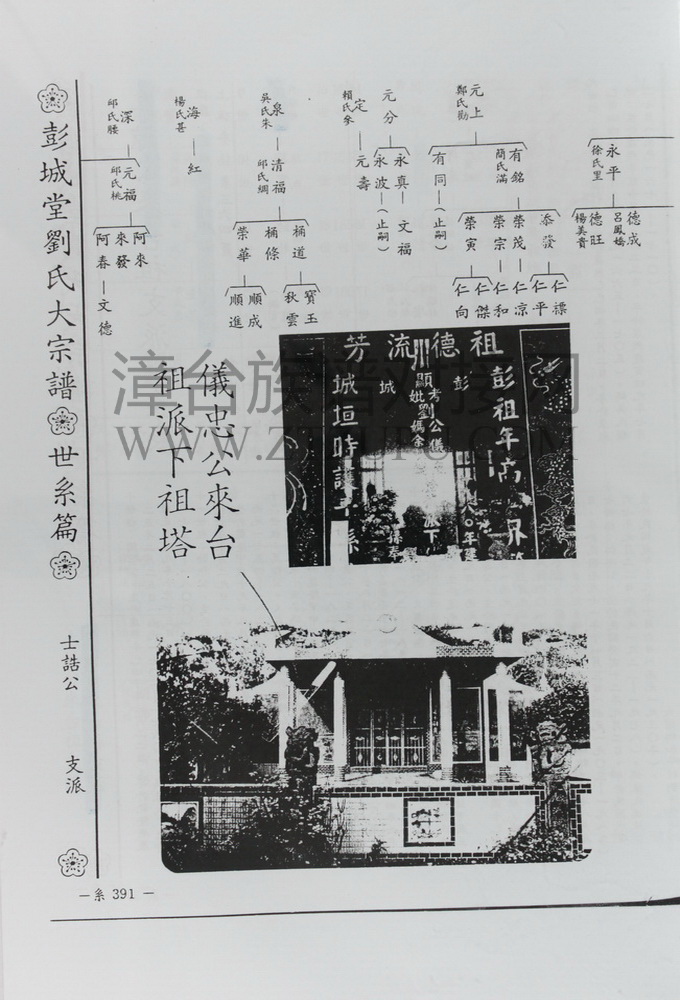 永平
徐氏里
德成
呂鳳嬌
德旺
楊美貴
元上
鄭氏勸
有銘
簡氏滿
添發
仁標
仁平
榮茂
仁凉
榮宗
仁和
榮寅
仁傑
仁向
有同
(止嗣)
元分
永真
文福
永波
(止嗣)
定
賴氏參
元壽
泉
吳氏朱
清福
邱氏綢
桶道
寶玉
秋雲
桶條
榮華
順成
順進
海
楊氏甚
紅
深
邱氏腰
元福
邱氏桃
阿來
來發
阿春
文德
彭城堂劉氏大宗譜
世系篇
士誥公
支派
祖德流芳
彭祖年高
彭城
顯考劉公儀
妣媽余
派下
城垣時護
儀忠公來台
祖派下祖塔
漳台族谱对接网
－系 391－